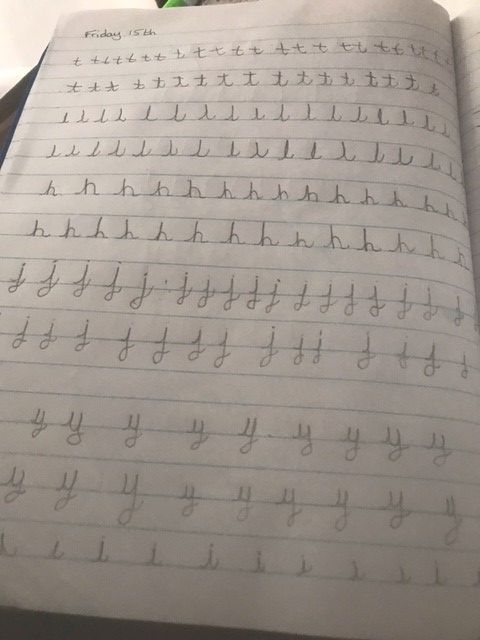 Friday 15th
t t t t t t t t t t t t t t t t t t t t
t t t t t t t t t t t t t t t t
l l l l l l l l l l l l l l l l l l
l l l l l l l l l l l l l l l l
h h h h h h h h h h h h h h h
h h h h h h h h h h h h h h
j j j j j j j j j j j j j j j j j
j j j j j j j j j j j j j j
y y y y y y y y y
y y y y y y y y y
i i i i i i i i i i